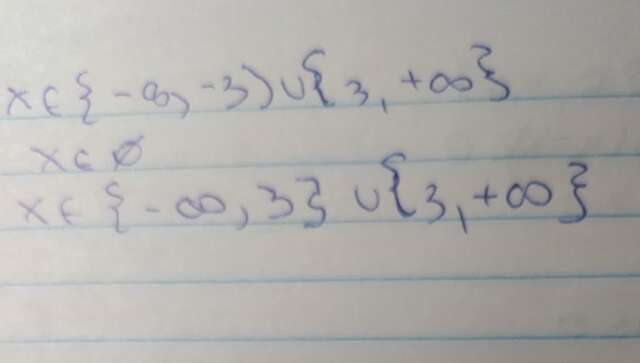 x∈{-∞, -3)∪{3, +∞}
x∈∅
x∈{-∞, 3}∪{3, +∞}